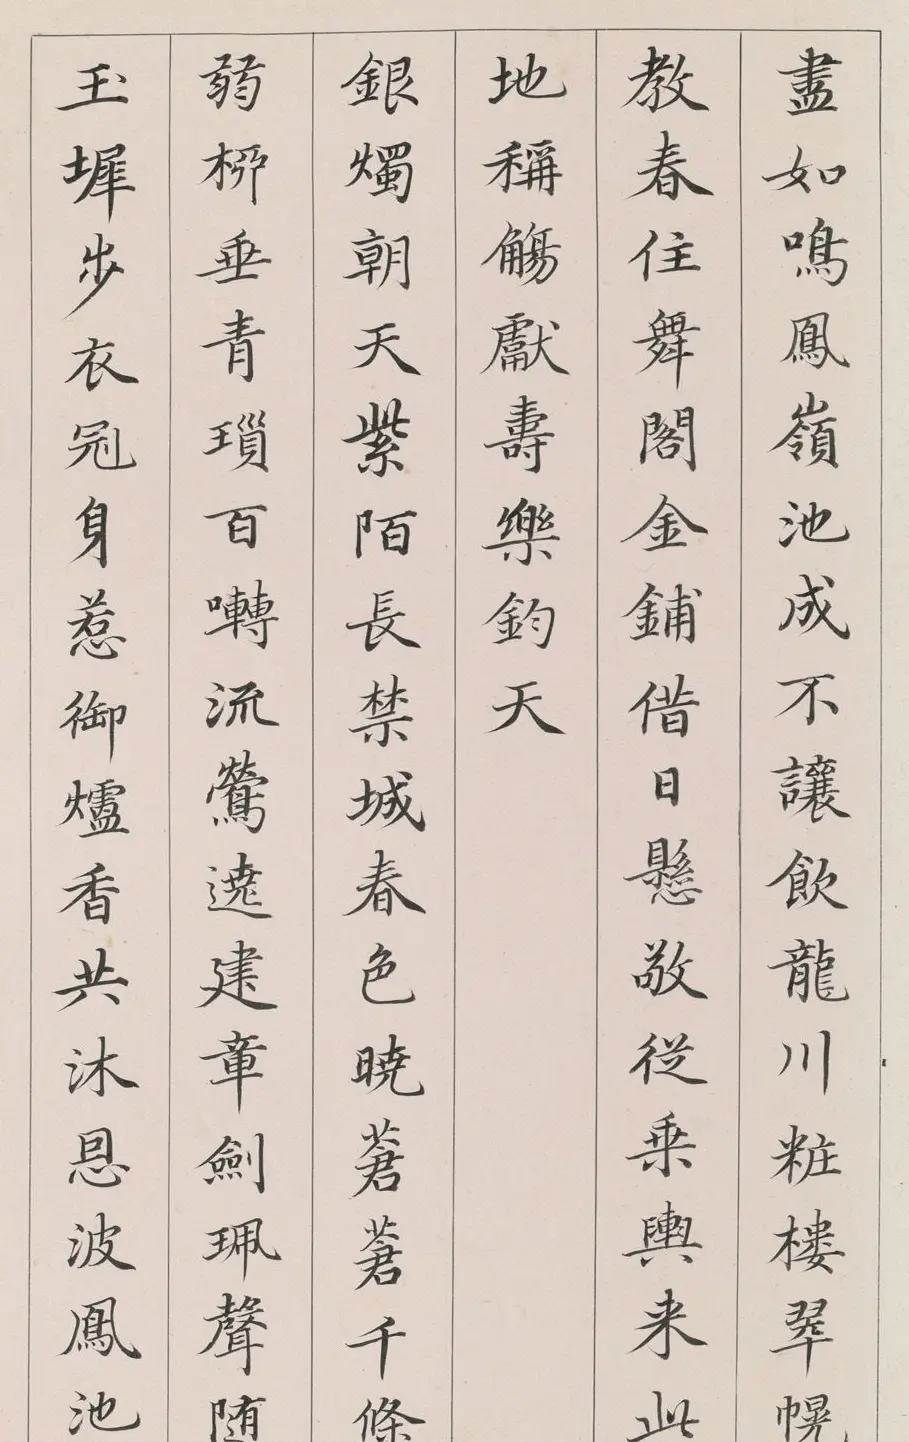 盡如鳴鳳嶺池成不讓飲龍川粧樓翠幌
教春住舞閣金鋪借日懸敬從乗輿来此
地稱觴獻壽樂鈞天
銀燭朝天紫陌長禁城春色曉蒼蒼千條
弱桺垂青瑣百囀流鶯遶建章劍珮聲随
玉墀步衣冠身惹御爐香共沐恩波鳳池